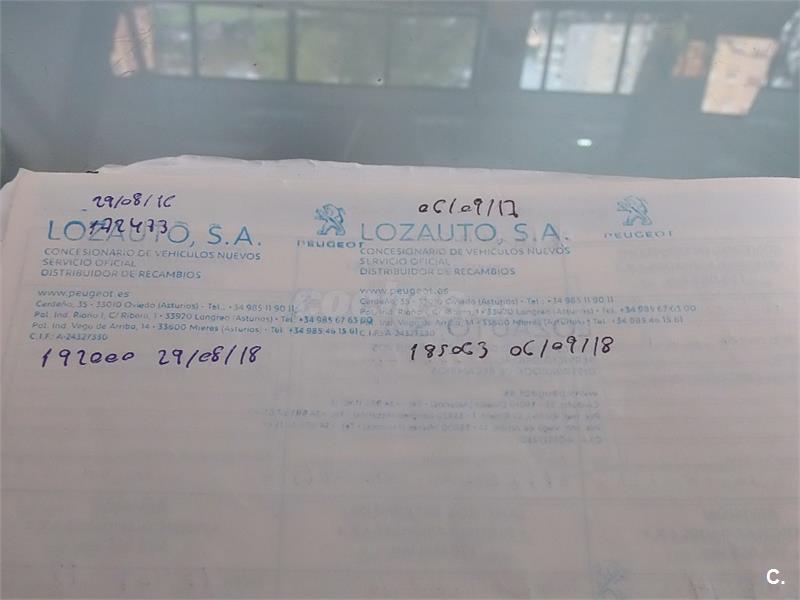 29/08/16
172473
LOZAUTO, S.A.
PEUGEOT
CONCESIONARIO DE VEHICULOS NUEVOS
SERVICIO OFICIAL
DISTRIBUIDOR DE RECAMBIOS
www.peugeot.es
Cerdeño, 35 - 33010 Oviedo (Asturias) - Tel.: +34 985 11 90 11
Pol. Ind. Riaño I, C/ Ribera, 1 - 33920 Langreo (Asturias) - Tel. +34 985 67 63 00
Pol. Ind. Vega de Arriba, 14 - 33600 Mieres (Asturias) - Tel. +34 985 46 15 61
C.I.F.: A-24327330
192000 29/08/18
06/09/17
LOZAUTO, S.A.
PEUGEOT
CONCESIONARIO DE VEHICULOS NUEVOS
SERVICIO OFICIAL
DISTRIBUIDOR DE RECAMBIOS
www.peugeot.es
Cerdeño, 35 - 33010 Oviedo (Asturias) - Tel.: +34 985 11 90 11
Pol. Ind. Riaño I, C/ Ribera, 1 - 33920 Langreo (Asturias) - Tel. +34 985 67 63 00
Ind. Vega de Arriba, 14 - 33600 Mieres (Asturias) - Tel. +34 985 46 15 61
C.I.F.: A-24327330
185063 06/09/18
C.